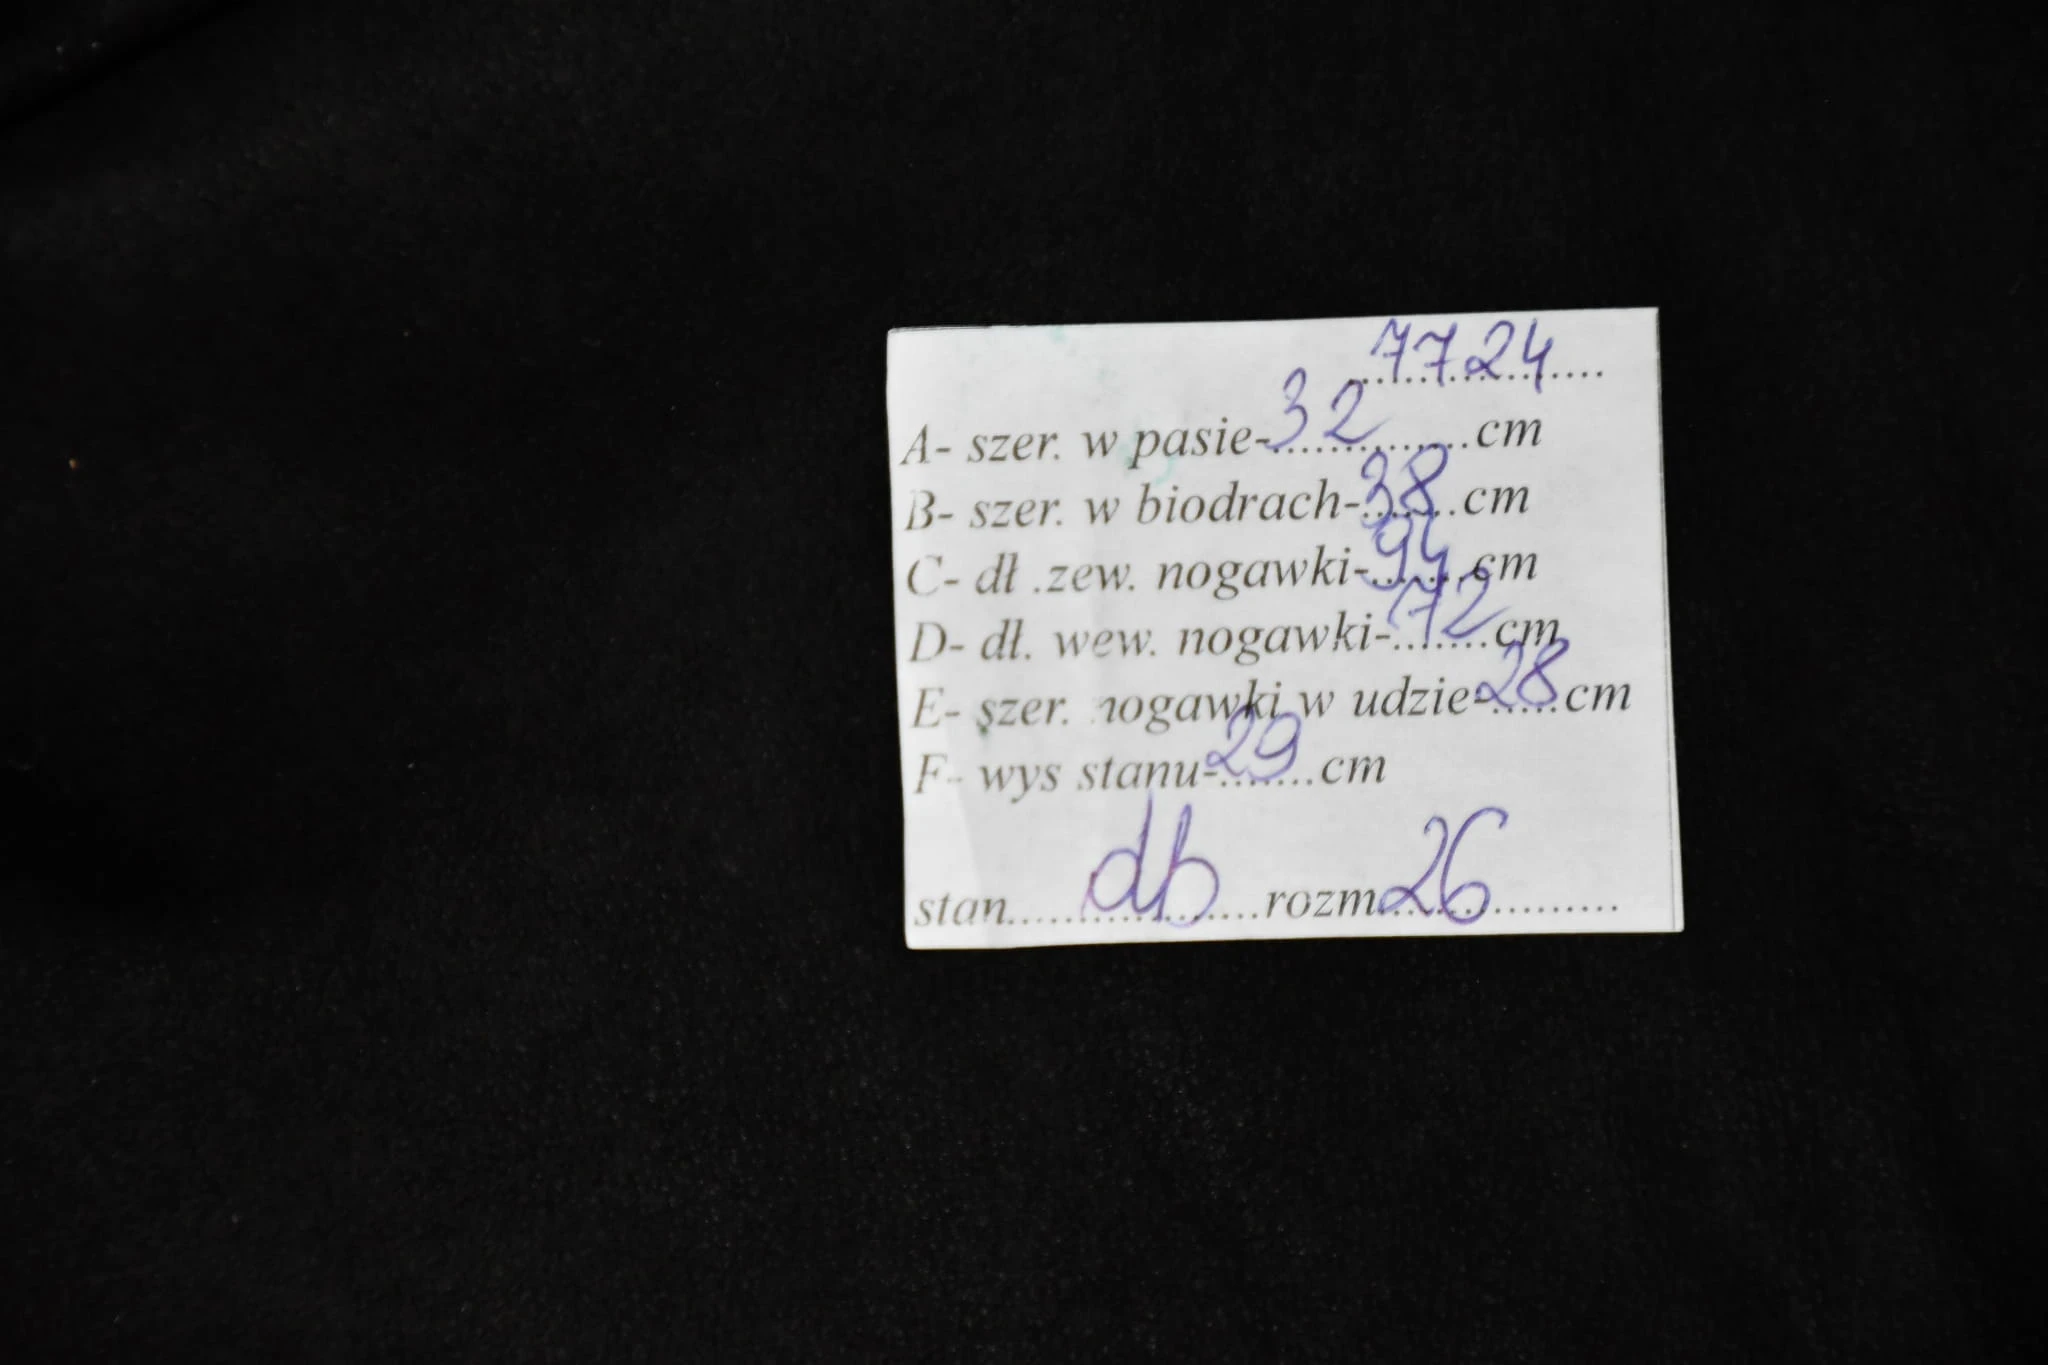 7724
A- szer. w pasie-32.............cm
B- szer. w biodrach-38.......cm
C- dł .zew. nogawki-94.......cm
D- dł. wew. nogawki-72.......cm
E- szer. nogawki w udzie-28.....cm
F- wys stanu-29.......cm
stan........db.........rozm.26...............